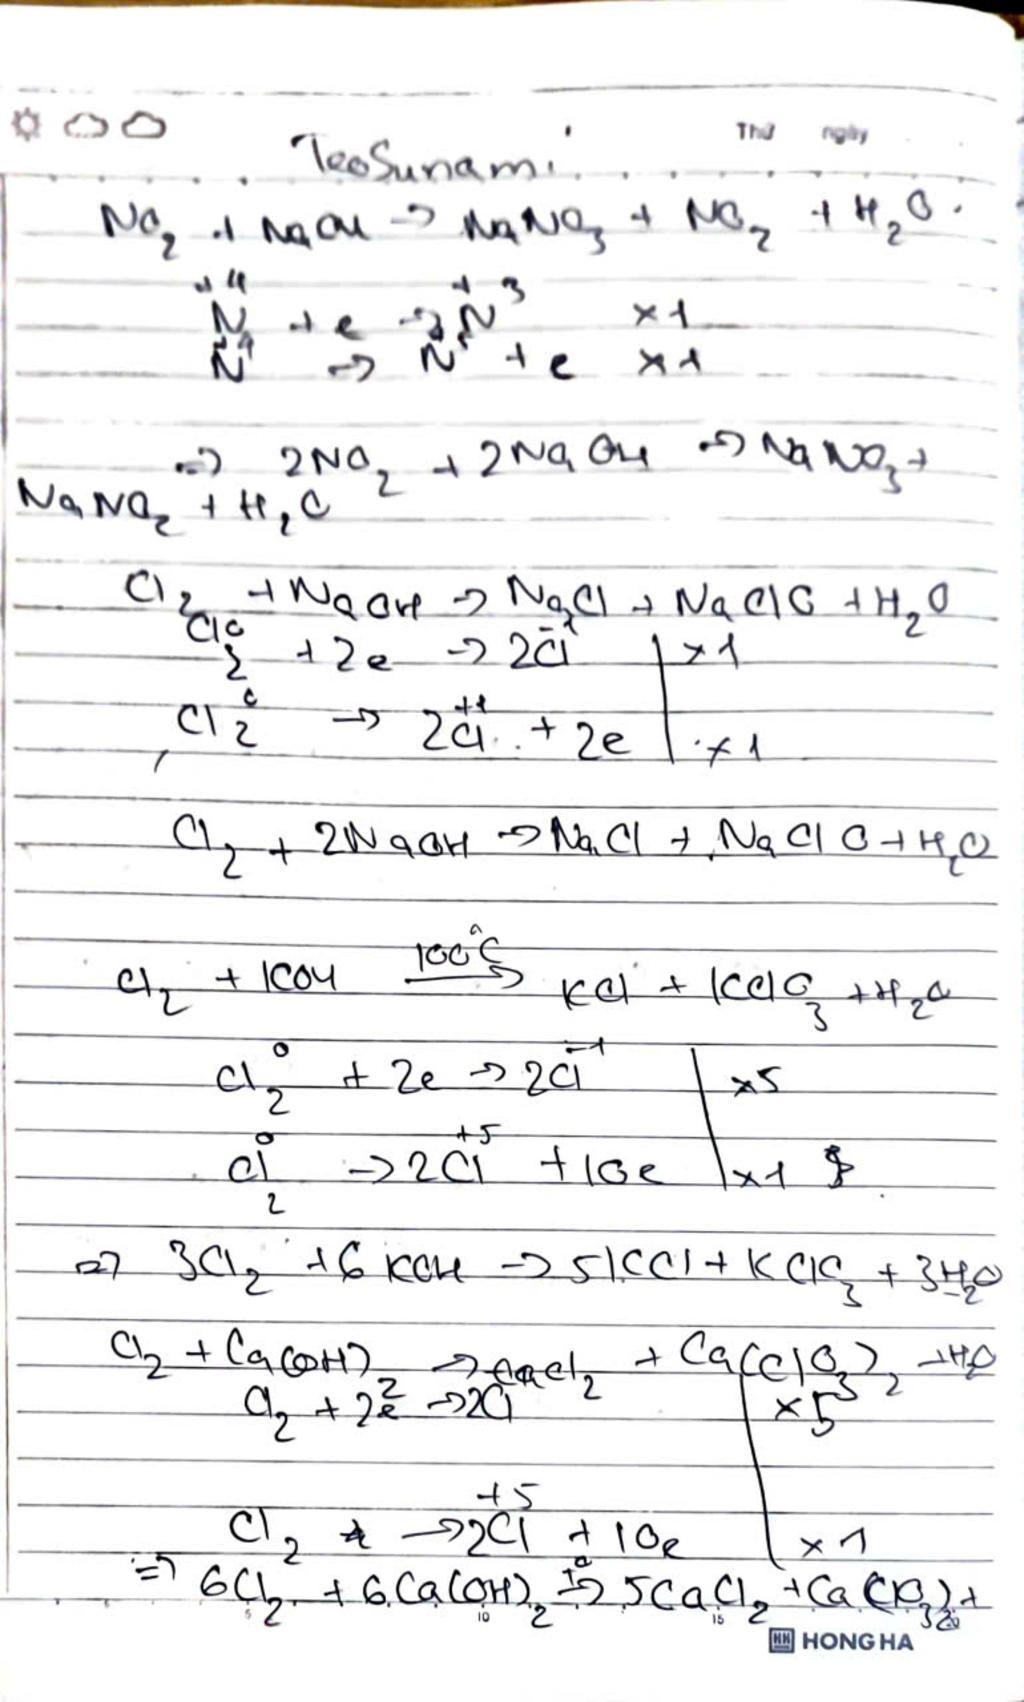 Thứ ngày
TeoSunami
NO₂ + NaOH → NaNO₃ + NO₂ + H₂O.
N⁺⁴ + e → N⁺³ ×1
N⁺⁴ → N⁺⁵ + e ×1
=> 2NO₂ + 2NaOH → NaNO₃ +
NaNO₂ + H₂O
Cl₂ + NaOH → NaCl + NaClO + H₂O
Cl₂⁰ + 2e → 2Cl⁻¹ | ×1
Cl₂⁰ → 2Cl⁺¹ + 2e | ×1
Cl₂ + 2NaOH → NaCl + NaClO + H₂O
100°C
Cl₂ + KOH → KCl + KClO₃ + H₂O
Cl₂⁰ + 2e → 2Cl⁻¹ | ×5
Cl₂⁰ → 2Cl⁺⁵ + 10e | ×1
=> 3Cl₂ + 6KOH → 5KCl + KClO₃ + 3H₂O
Cl₂ + Ca(OH)₂ → CaCl₂ + Ca(ClO₃)₂ + H₂O
Cl₂ + 2e → 2Cl | ×5
Cl₂ → 2Cl⁺⁵ + 10e | ×1
=> 6Cl₂ + 6Ca(OH)₂ →t° 5CaCl₂ + Ca(ClO₃)₂ +
5 10 15 20
HONG HA